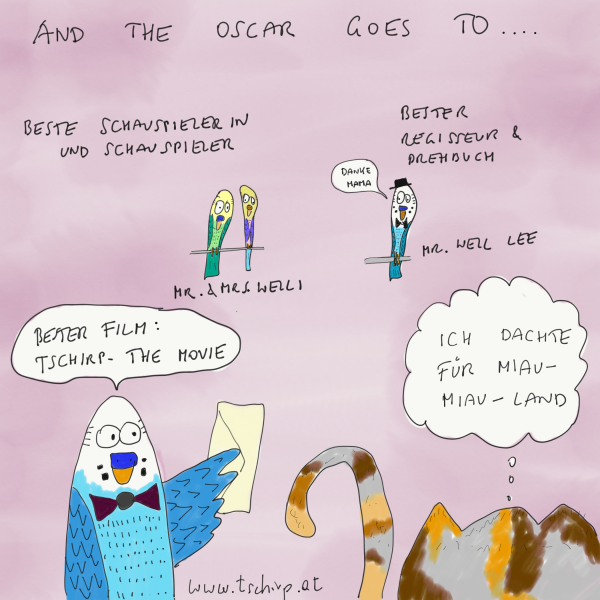 AND THE OSCAR GOES TO....
BESTE SCHAUSPIELERIN
UND SCHAUSPIELER
BESTER
REGISSEUR &
DREHBUCH
DANKE
MAMA
MR. WELL LEE
MR. & MRS. WELLI
BESTER FILM:
TSCHIRP- THE MOVIE
ICH DACHTE
FÜR MIAU-
MIAU-LAND
www.tschirp.at